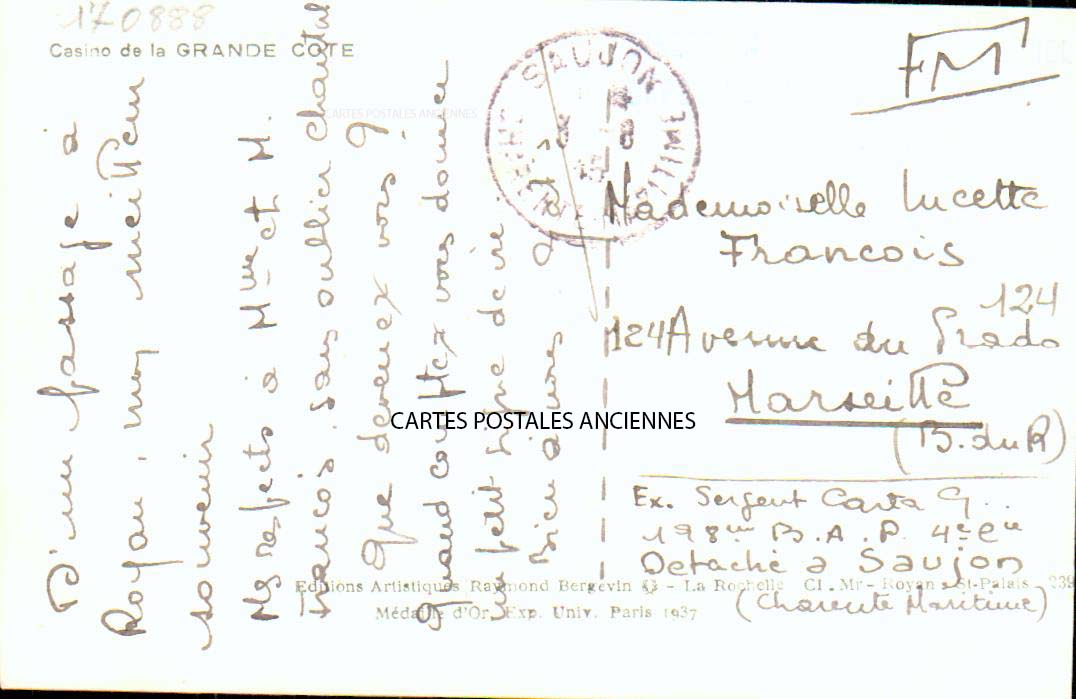 170888
Casino de la GRANDE COTE
D'un passage à
Royan, mon meilleur
souvenir
Mes respects à Mme et M.
Francois. sans oublier Chantal
Que devenez vous ?
Quand comptez vous donner
un petit signe de vie.
Bien à vous
SAUJON
FM
Mademoiselle Lucette
Francois
124
124 Avenue du Prado
Marseille
(B. du R)
Ex. Sergent Casta G..
198eme B.A.P. 4e Cie
Détaché à Saujon
(Charente Maritime)
Editions Artistiques Raymond Bergevin - La Rochelle Cl. Mr - Royan - St-Palais 239
Médaille d'Or, Exp. Univ. Paris 1937
CARTES POSTALES ANCIENNES
CARTES POSTALES ANCIENNES